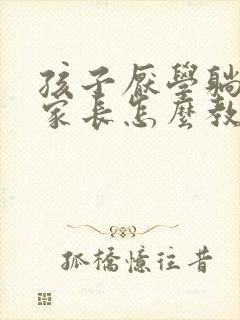 孩子厭學躺
家長怎麼教
孤橋憶往昔